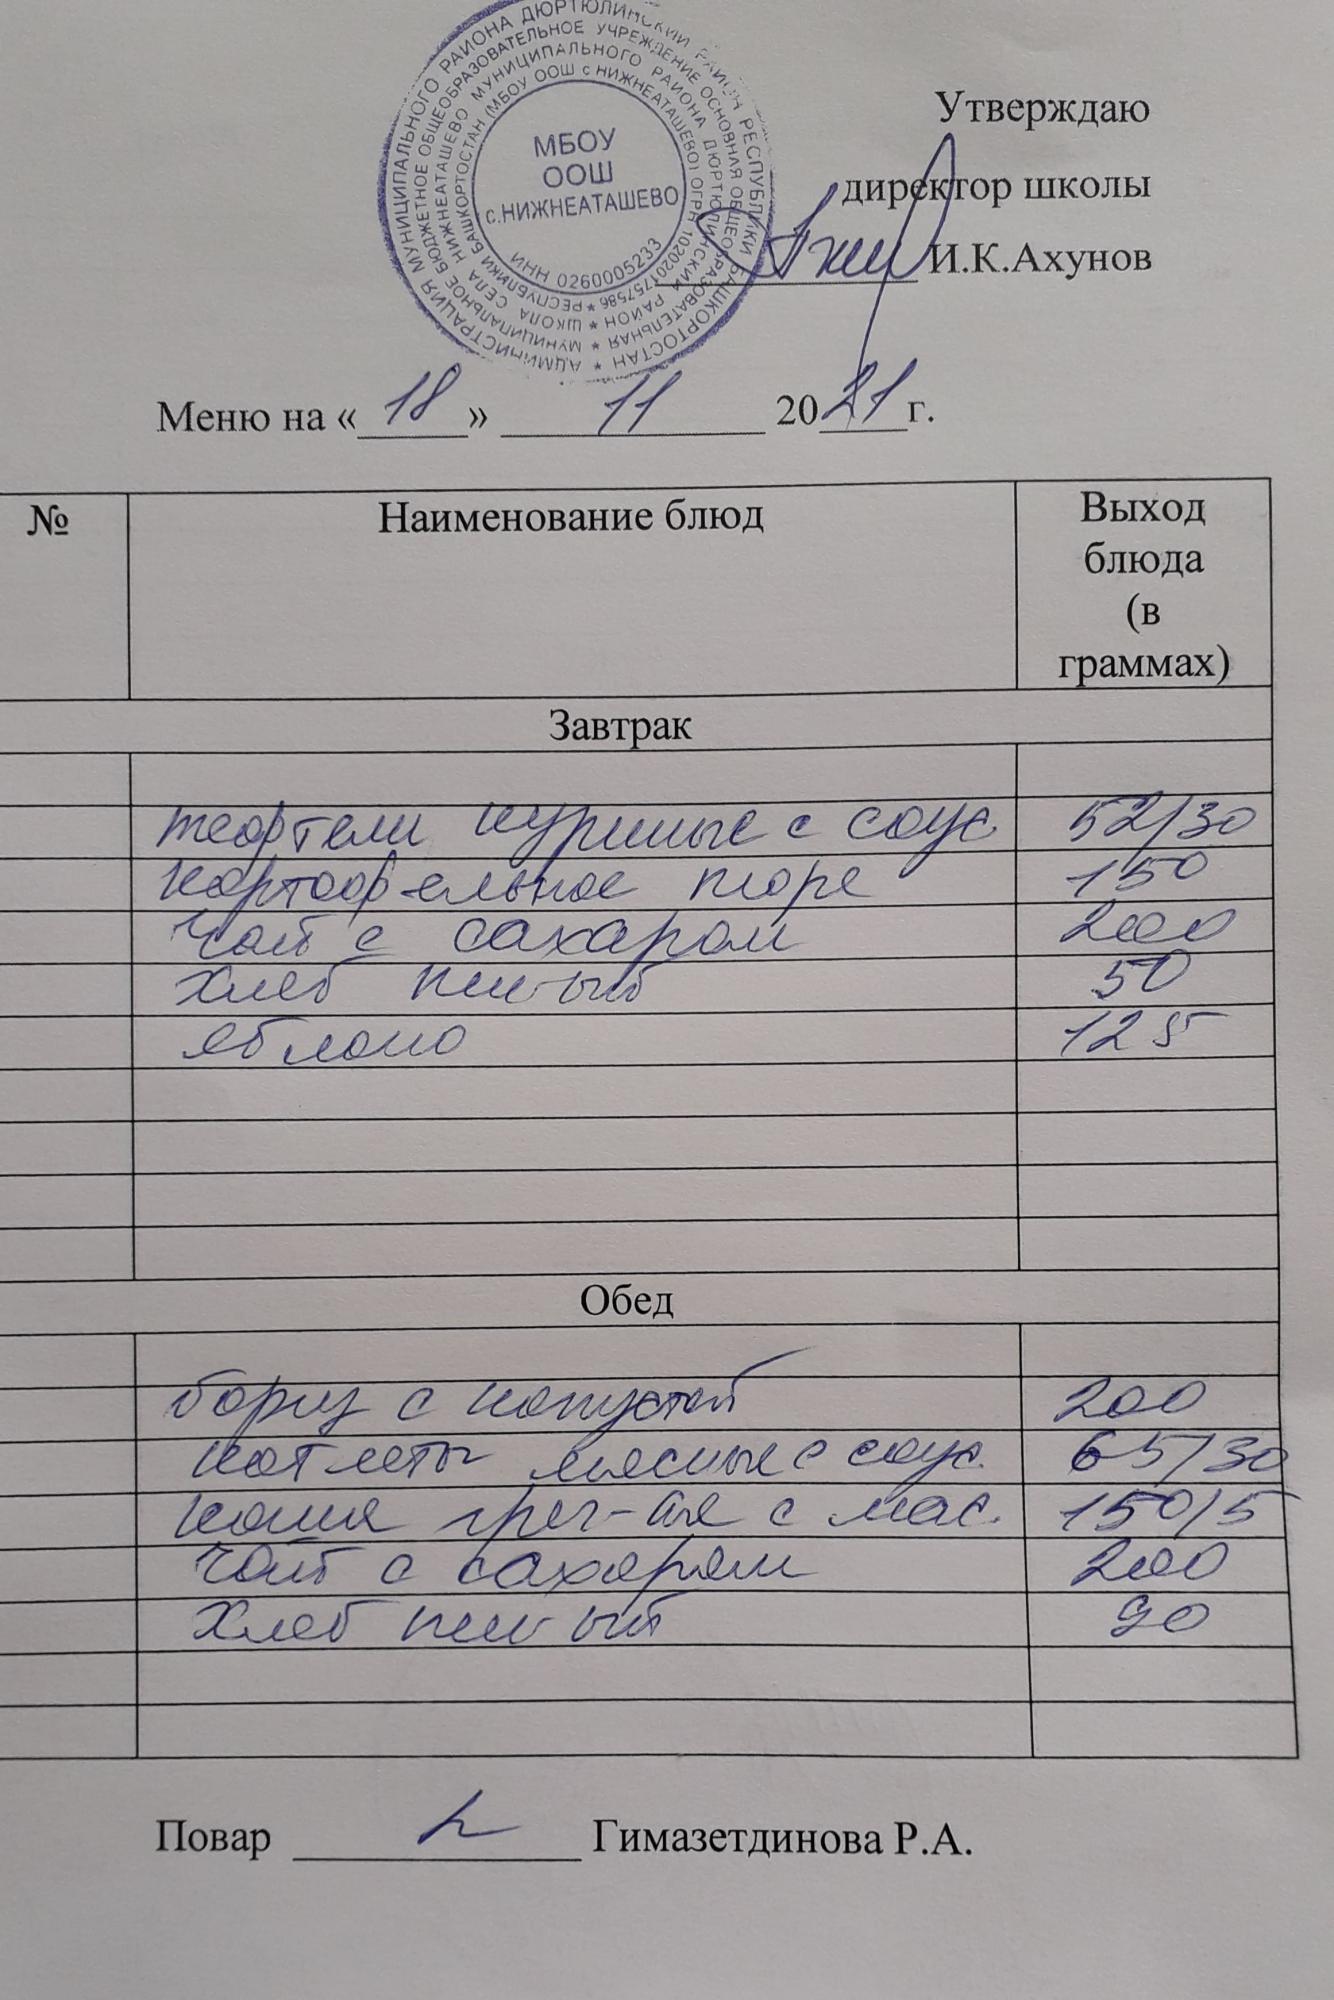 АДМИНИСТРАЦИЯ МУНИЦИПАЛЬНОГО РАЙОНА ДЮРТЮЛИНСКИЙ РАЙОН РЕСПУБЛИКИ БАШКОРТОСТАН *
МУНИЦИПАЛЬНОЕ БЮДЖЕТНОЕ ОБЩЕОБРАЗОВАТЕЛЬНОЕ УЧРЕЖДЕНИЕ ОСНОВНАЯ ОБЩЕОБРАЗОВАТЕЛЬНАЯ *
ШКОЛА СЕЛА НИЖНЕАТАШЕВО МУНИЦИПАЛЬНОГО РАЙОНА ДЮРТЮЛИНСКИЙ РАЙОН *
РЕСПУБЛИКИ БАШКОРТОСТАН (МБОУ ООШ с НИЖНЕАТАШЕВО) ОГРН 1020201757586 *
МБОУ
ООШ
с.НИЖНЕАТАШЕВО
ИНН 0260005233
Утверждаю
директор школы
И.К.Ахунов
Меню на «18» 11 2021г.
№ Наименование блюд Выход
блюда
(в
граммах)
Завтрак
тефтели куриные с соус 52/30
картофельное пюре 150
Чай с сахаром 200
Хлеб пш-ый 50
яблоко 125
Обед
борщ с капустой 200
котлеты мясные с соус. 65/30
каша греч-ая с мас. 150/5
Чай с сахаром 200
Хлеб пш-ый 90
Повар Гимазетдинова Р.А.